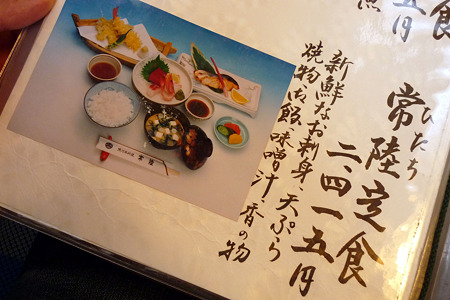 定食
五円
ひたち
常陸定食
二、四一五円
新鮮なお刺身、天ぷら
焼物、御飯、味噌汁、香の物